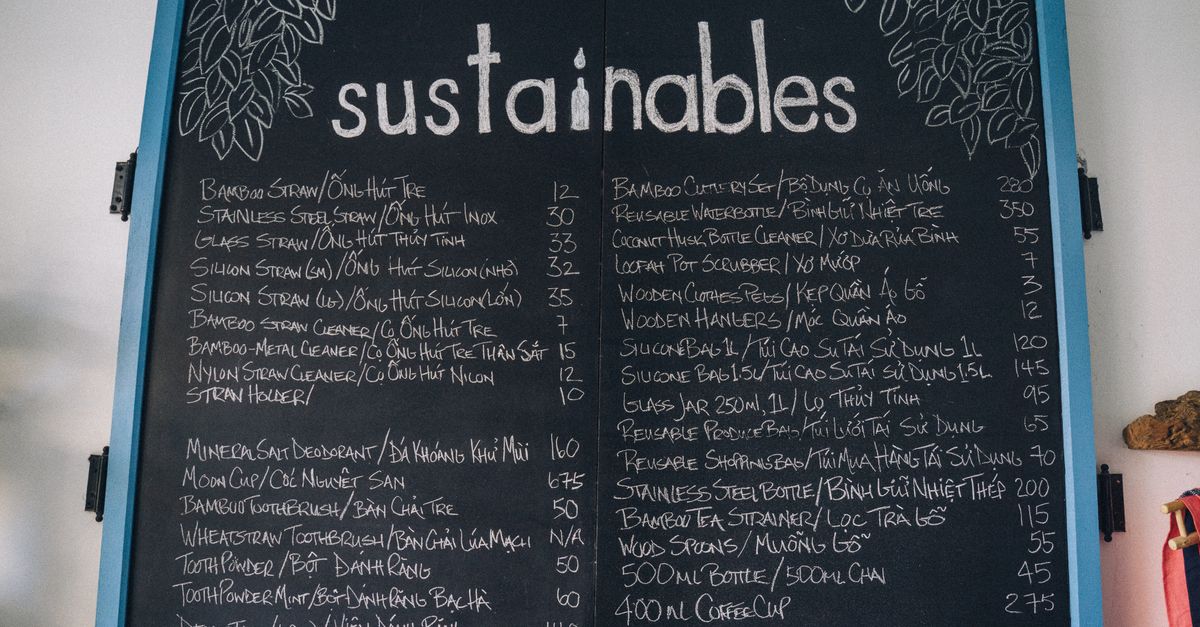 sustainables
BAMBOO STRAW/ỐNG HÚT TRE 12
STAINLESS STEEL STRAW/ỐNG HÚT INOX 30
GLASS STRAW/ỐNG HÚT THỦY TINH 33
SILICON STRAW (SM) /ỐNG HÚT SILICON (NHỎ) 32
SILICON STRAW (LG) /ỐNG HÚT SILICON (LỚN) 35
BAMBOO STRAW CLEANER/CỌ ỐNG HÚT TRE 7
BAMBOO-METAL CLEANER/CỌ ỐNG HÚT TRE THÂN SẮT 15
NYLON STRAW CLEANER/CỌ ỐNG HÚT NILON 12
STRAN HOLDER/ 10
MINERAL SALT DEODORANT/ĐÁ KHOÁNG KHỬ MÙI 160
MOON CUP/CỐC NGUYỆT SAN 675
BAMBOO TOOTHBRUSH/BÀN CHẢI TRE 50
WHEATSTRAW TOOTHBRUSH/BÀN CHẢI LÚA MẠCH N/A
TOOTH POWDER/BỘT ĐÁNH RĂNG 50
TOOTH POWDER MINT/BỘT ĐÁNH RĂNG BẠC HÀ 60
BAMBOO CUTLERY SET/BỘ DỤNG CỤ ĂN UỐNG 280
REUSABLE WATERBOTTLE/BÌNH GIỮ NHIỆT TRE 350
COCONUT HUSK BOTTLE CLEANER/XƠ DỪA RỬA BÌNH 55
LOOFAH POT SCRUBBER/XƠ MƯỚP 7
WOODEN CLOTHES PEGS/KẸP QUẦN ÁO GỖ 3
WOODEN HANGERS/MÓC QUẦN ÁO 12
SILICONE BAG 1L/TÚI CAO SU TÁI SỬ DỤNG 1L 120
SILICONE BAG 1.5L/TÚI CAO SU TÁI SỬ DỤNG 1.5L 145
GLASS JAR 250ML, 1L/LỌ THỦY TINH 95
REUSABLE PRODUCE BAG/TÚI LƯỚI TÁI SỬ DỤNG 65
REUSABLE SHOPPING BAG/TÚI MUA HÀNG TÁI SỬ DỤNG 70
STAINLESS STEEL BOTTLE/BÌNH GIỮ NHIỆT THÉP 200
BAMBOO TEA STRAINER/LỌC TRÀ GỖ 115
WOOD SPOONS/MUỖNG GỖ 55
500ML BOTTLE/500ML CHAI 45
400 ML COFFEE CUP 275